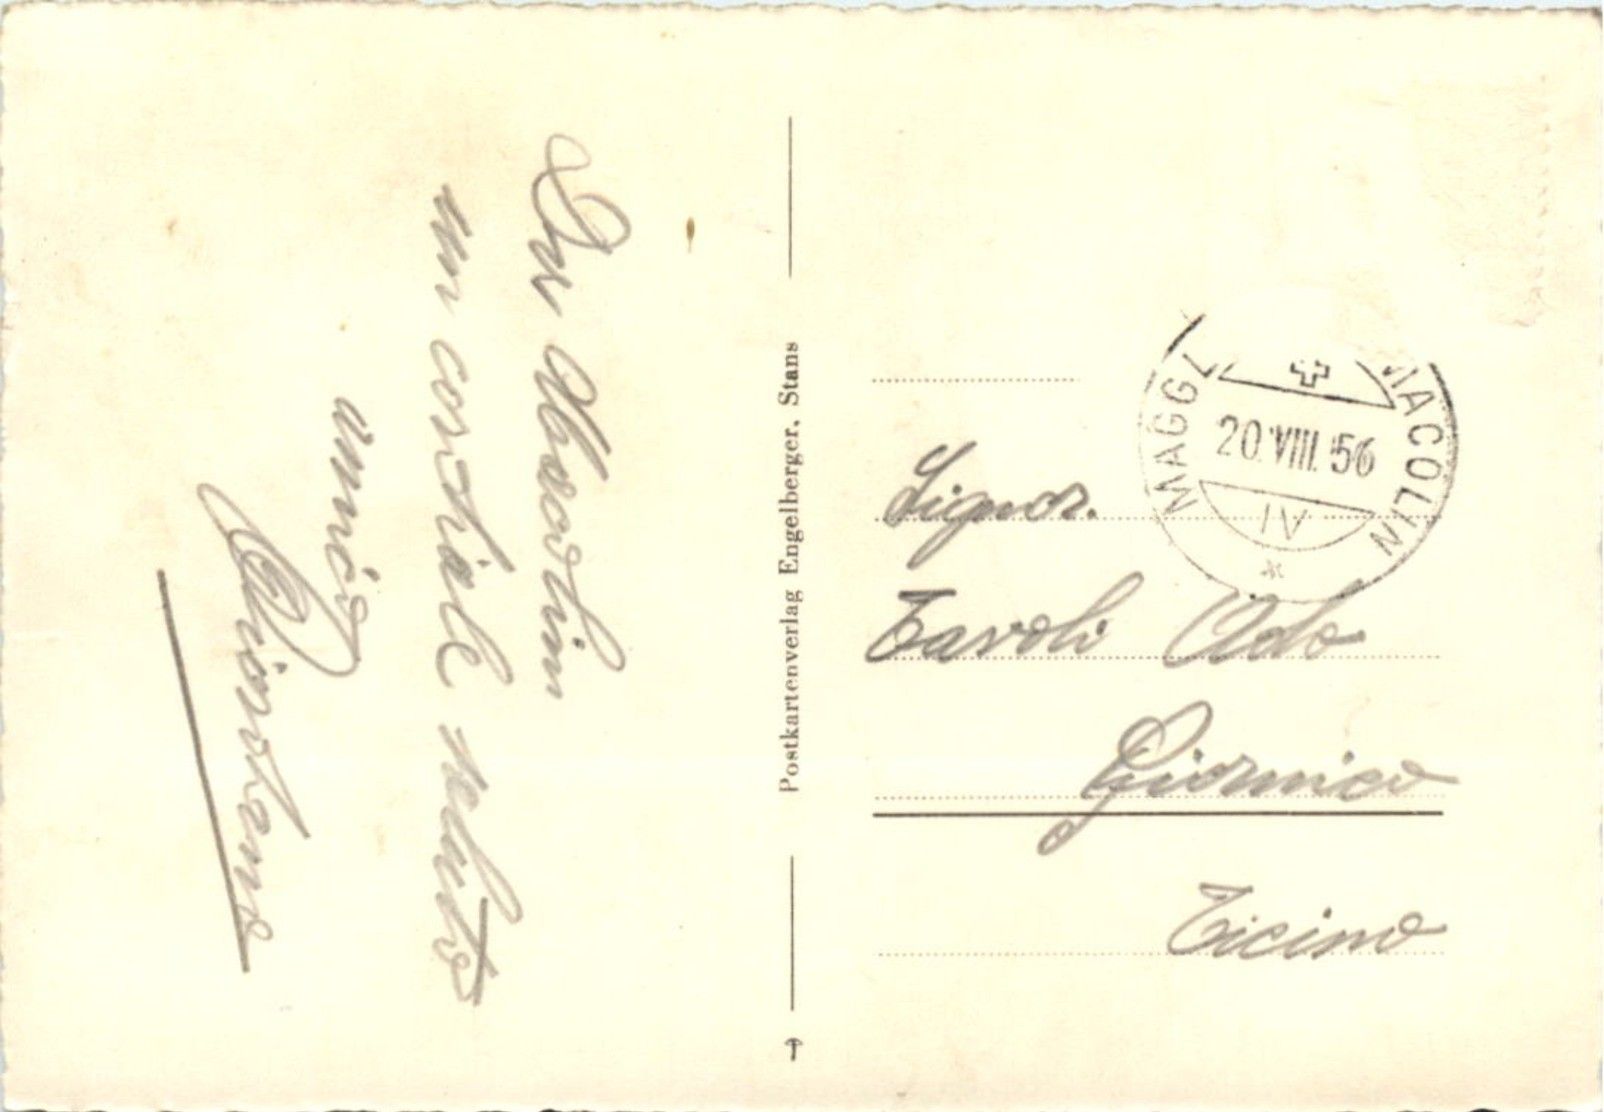 Da Macolin
un cordiale saluto
amico
Postkartenverlag Engelberger, Stans
MAGGL MACOLIN
20.VIII.56
Signor.
Tavoli Aldo
Giornico
Ticino